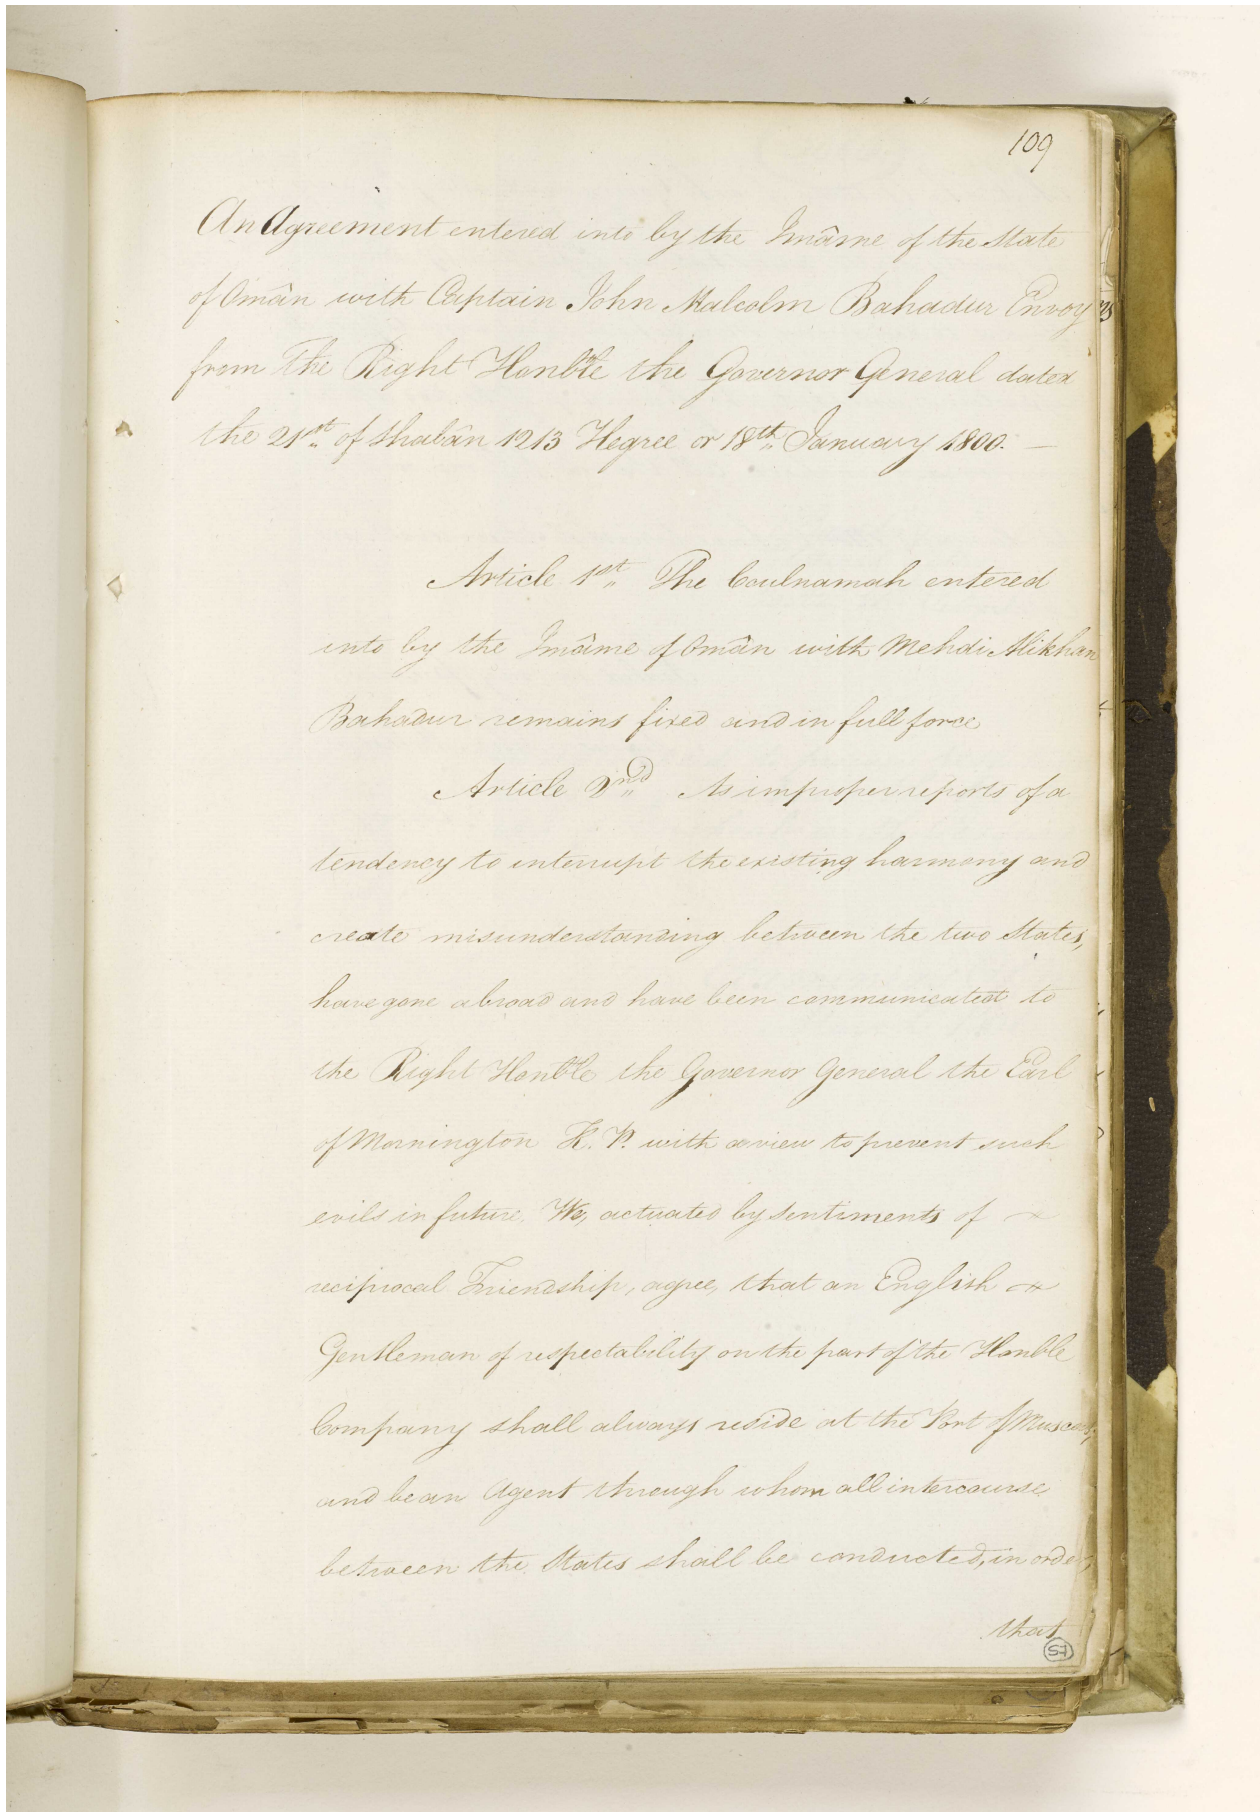 109
An Agreement entered into by the Imâme of the State
of Omân with Captain John Malcolm Bahadur Envoy
from The Right Honble the Governor General dated
the 21st of Shabân 1213 Hegree or 18th January 1800. —
Article 1st The Coulnamah entered
into by the Imâme of Omân with Mehdi Alikhan
Bahadur remains fixed and in full force
Article 2nd As improper reports of a
tendency to interrupt the existing harmony and
create misunderstanding between the two States,
have gone abroad and have been communicated to
the Right Honble the Governor General the Earl
of Mornington K. P. with a view to prevent such
evils in future. We, actuated by sentiments of
reciprocal Friendship, agree, that an English
Gentleman of respectability on the part of the Honble
Company shall always reside at the Port of Muscat,
and be an Agent through whom all intercourse
between the States shall be conducted, in order,
that